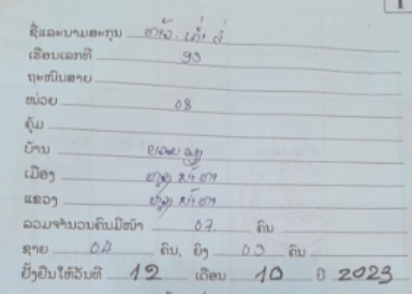 ຊື່ແລະນາມສະກຸນ ທ້າວ. ເກົ່າ ລໍ່
ເຮືອນເລກທີ 93
ຖະໜົນສາຍ
ໜ່ວຍ 08
ຄຸ້ມ
ບ້ານ
ເມືອງ ຫຼວງນໍ້າທາ
ແຂວງ ຫຼວງນໍ້າທາ
ລວມຈໍານວນຄົນມີໜ້າ 07 ຄົນ
ຊາຍ 04 ຄົນ, ຍິງ 03 ຄົນ
ຢັ້ງຢືນໃຫ້ວັນທີ 12 ເດືອນ 10 ປີ 2023